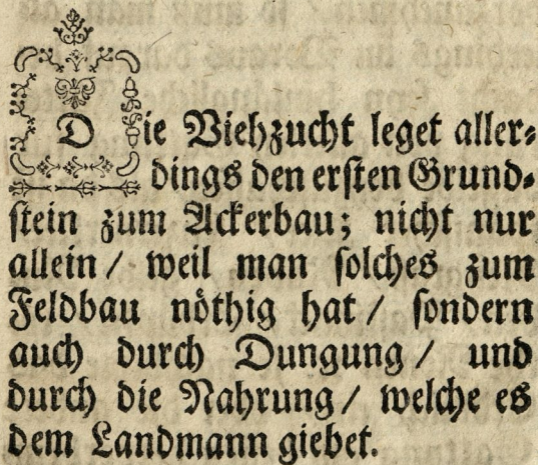 Die Viehzucht leget aller⸗
dings den ersten Grund⸗
stein zum Ackerbau; nicht nur
allein / weil man solches zum
Feldbau nöthig hat / sondern
auch durch Dungung / und
durch die Nahrung / welche es
dem Landmann giebet.